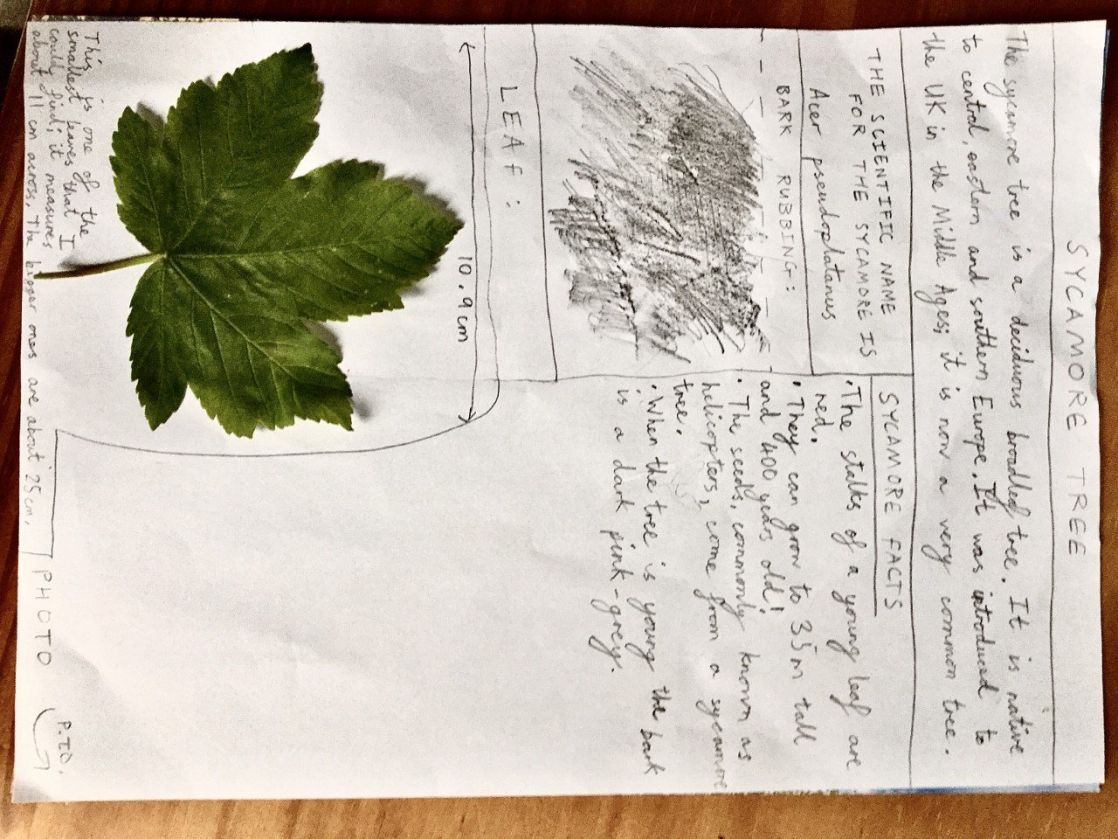 SYCAMORE TREE
The sycamore tree is a deciduous broadleaf tree. It is native
to central, eastern and southern Europe. It was introduced to
the UK in the Middle Ages; it is now a very common tree.
THE SCIENTIFIC NAME
FOR THE SYCAMORE IS
Acer pseudoplatanus
BARK RUBBING:
SYCAMORE FACTS
• The stalks of a young leaf are
red.
• They can grow to 35m tall
and 400 years old!
• The seeds, commonly known as
helicopters, come from a sycamore
tree.
• When the tree is young the bark
is a dark pink-grey.
LEAF:
10.9cm
This is one of the
smallest leaves that I
could find; it measures
about 11 cm across. The bigger ones are about 25cm.
PHOTO
P.T.O.